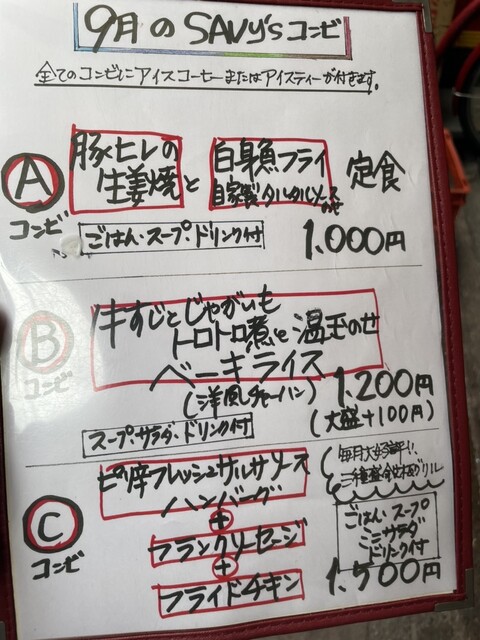 9月のSAVY'sコンビ
全てのコンビにアイスコーヒーまたはアイスティーが付きます。
A
コンビ
豚ヒレの
生姜焼と
白身魚フライ
自家製タルタルソース
のせ
定食
ごはん・スープ・ドリンク付
1,000円
B
コンビ
牛すじとじゃがいも
トロトロ煮と温玉のせ
ベーキライス
(洋風チャーハン)
1,200円
(大盛+100円)
スープ・サラダ・ドリンク付
C
コンビ
ピリ辛フレッシュサルサソース
ハンバーグ
+
フランクソーセージ
+
フライドチキン
毎月大好評!!
三種盛合せグリル
ごはん・スープ
ミニサラダ
ドリンク付
1,500円